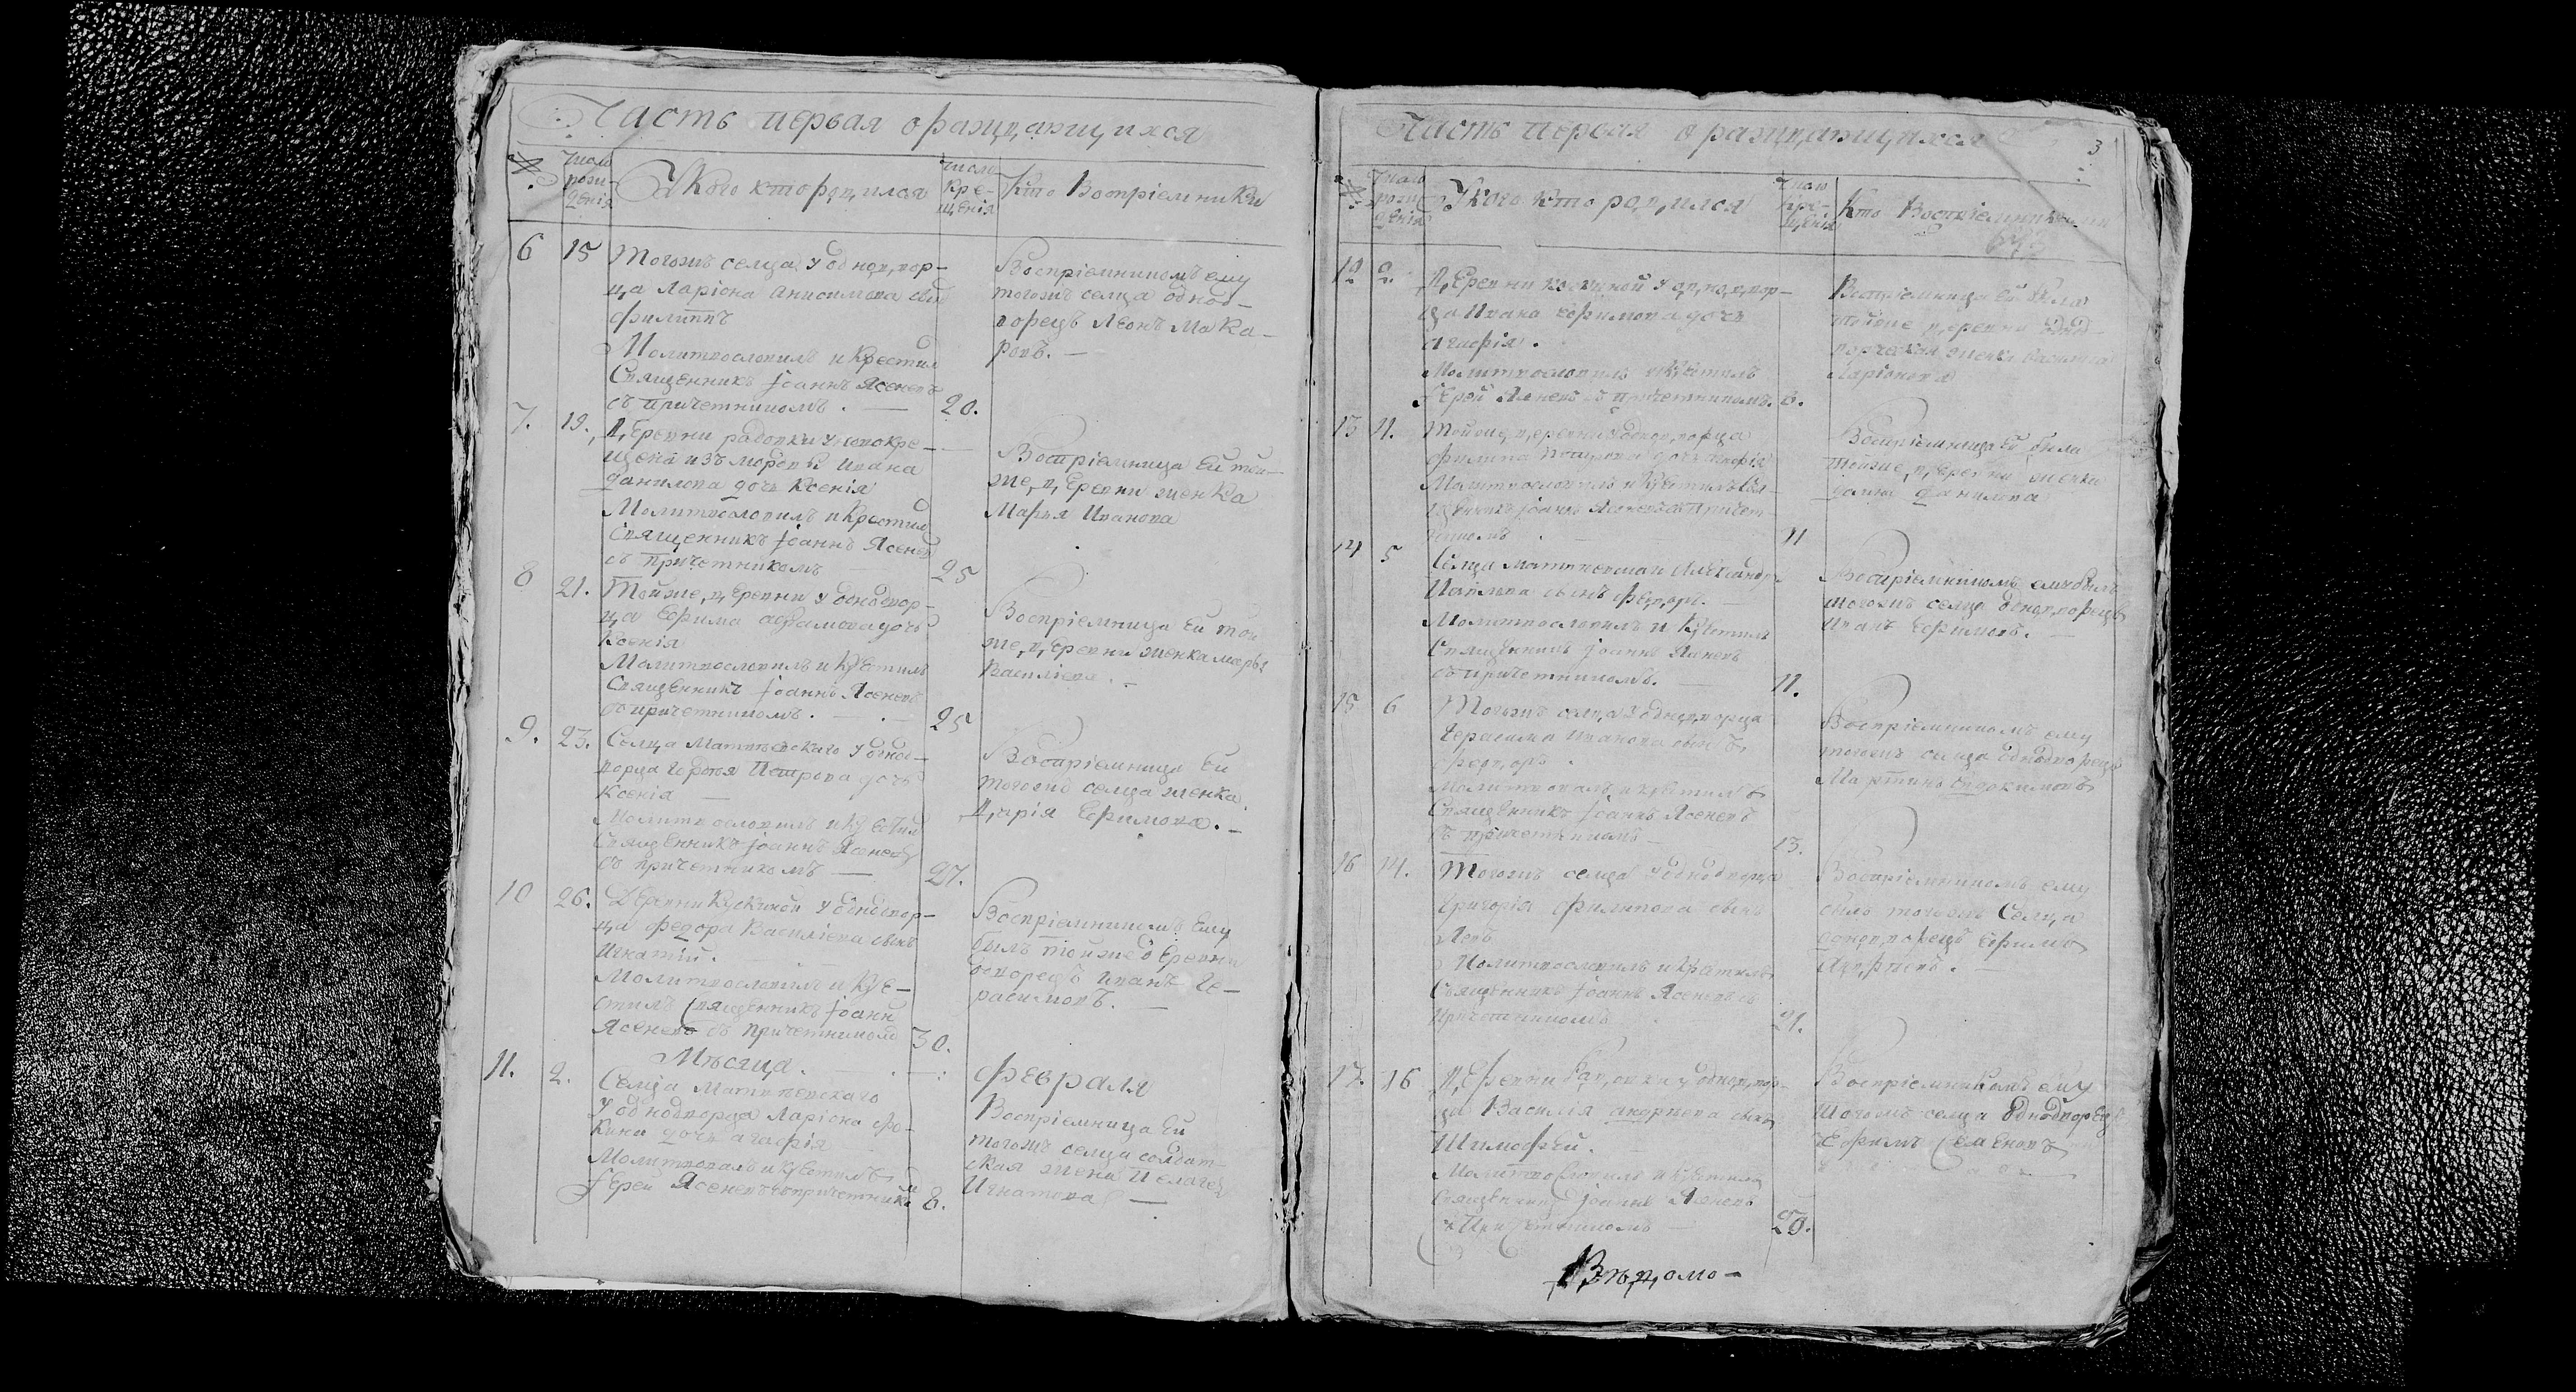 Часть первая о раждающихся
№
Число рожденія
У кого кто родился
Число крещенія
Кто Воспріемники
6 15 Тогожъ селца у однодвор-
ца Ларіона Анисимова сынъ
Филиппъ
Молитвословилъ и крестилъ
Священникъ Іоаннъ Ясеневъ
съ причетникомъ. 20.
Воспріемникомъ ему
тогожъ селца однод-
ворецъ Леонъ Мака-
ровъ.
7. 19. Деревни радовки у новокре-
щена изъ мордвы Ивана
Данилова дочь Ксенія
Молитвословилъ и крестилъ
Священникъ Іоаннъ Ясеневъ
съ причетникомъ 25
Воспріемница ей той-
же деревни женка
Марья Иванова
8 21. Тойже деревни у однодвор-
ца Ефима абрамова дочь
Ксенія
Молитвословилъ и крестилъ
Священникъ Іоаннъ Ясеневъ
съ причетникомъ. 25
Воспріемница ей той
же деревни женка марья
Василіева.
9. 23. Селца Матвѣевскаго у однод-
ворца Сергѣя Петрова дочь
Ксенія
Молитвословилъ и крестилъ
Священникъ Іоаннъ Ясеневъ
съ причетникомъ 27.
Воспріемница ей
тогожъ селца женка
Дарія Ефимова.
10 26. Деревни у однодвор-
ца Федора Василіева сынъ
Игнатій.
Молитвословилъ и кре-
стилъ Священникъ Іоаннъ
Ясеневъ съ причетникомъ 30.
Воспріемникомъ ему
былъ тойже деревни
Иванъ Ге-
расимовъ.
Мѣсяца. Февраля
11. 2. Селца Матвѣевскаго
у однодворца Ларіона Фо-
кина дочь агафія
Молитвовалъ и крестилъ
Іерей Ясеневъ съ причетникомъ 8.
Воспріемница ей
тогожъ селца солдат-
ская жена Пелагея
Игнатова
Часть первая о раждающихся
3
№
Число рожденія
У кого кто родился
Число крещенія
Кто Воспріемники
12 Деревни у однодвор-
ца Ивана Ефимова дочь
агафія.
Молитвословилъ и крестилъ
Іерей Ясеневъ съ причетникомъ. 8.
Воспріемница ей была
тойже деревни однод-
ворческая женка
Ларіонова
13 11. Тойже деревни у однодворца
Филипа Петрова дочь
Молитвословилъ и крестилъ Свя-
щенникъ Іоаннъ Ясеневъ съ причет-
никомъ. 11
Воспріемница ей была
тойже деревни женка
Данилова
14 5 Селца Матвѣевскаго
сынъ Федоръ.
Молитвословилъ и крестилъ
Священникъ Іоаннъ Ясеневъ
съ причетникомъ. 11.
Воспріемникомъ ему былъ
тогожъ селца однодворецъ
Иванъ Ефимовъ.
15 6 Тогожъ селца у однодворца
Герасима Иванова сынъ
Федоръ.
Молитвовалъ и крестилъ
Священникъ Іоаннъ Ясеневъ
съ причетникомъ 13.
Воспріемникомъ ему
тогожъ селца однодворецъ
Мартинъ Евдокимовъ
16 14. Тогожъ селца у однодворца
Григорія Филипова сынъ
Левъ
Молитвословилъ и крестилъ
Священникъ Іоаннъ Ясеневъ съ
причетникомъ 21.
Воспріемникомъ ему
былъ тогожъ Селца
однодворецъ Ефимъ
17. 16 Деревни Радовки у однодвор-
ца Василія андреева сынъ
Тимофей.
Молитвословилъ и крестилъ
Священникъ Іоаннъ Ясеневъ
съ Причетникомъ 20.
Воспріемникомъ ему
тогожъ селца однодворецъ
Ефимъ Семеновъ
Вѣдомо-